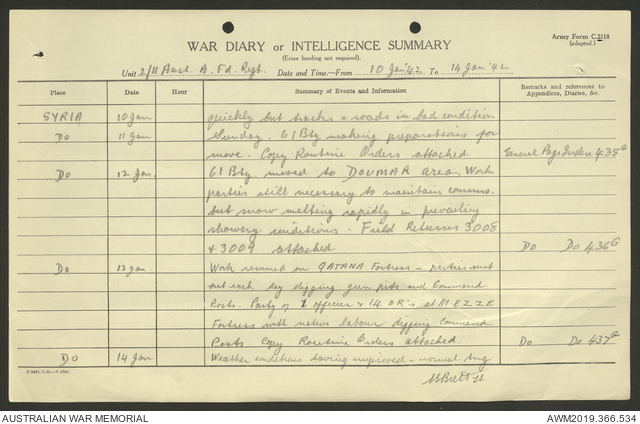 Army Form C.2118
(adapted.)
WAR DIARY or INTELLIGENCE SUMMARY
(Erase heading not required).
Unit 2/11 Aust. A. Fd. Regt. Date and Time.—From 10 Jan '42 To 14 Jan '42
Place Date Hour Summary of Events and Information Remarks and references to
Appendices, Diaries, &c.
SYRIA 10 Jan quickly but tracks & roads in bad condition
Do 11 Jan Sunday. 61 Bty making preparations for
move. Copy Routine Orders attached General Page 435G
Do 12 Jan. 61 Bty. moved to DOUMAR area. Work
parties still necessary to maintain comms.
but snow melting rapidly in prevailing
showery conditions. Field Returns 3008
& 3009 attached Do Do 436G
Do 13 Jan Work resumed on QATANA Fortress – parties sent
out each day digging gun pits and Command
Posts. Party of 1 officer & 14 OR's at MEZZE
Fortress with native labour digging Command
Posts Copy Routine Orders attached. Do Do 437G
Do 14 Jan Weather conditions having improved – normal
AUSTRALIAN WAR MEMORIAL AWM2019.366.534